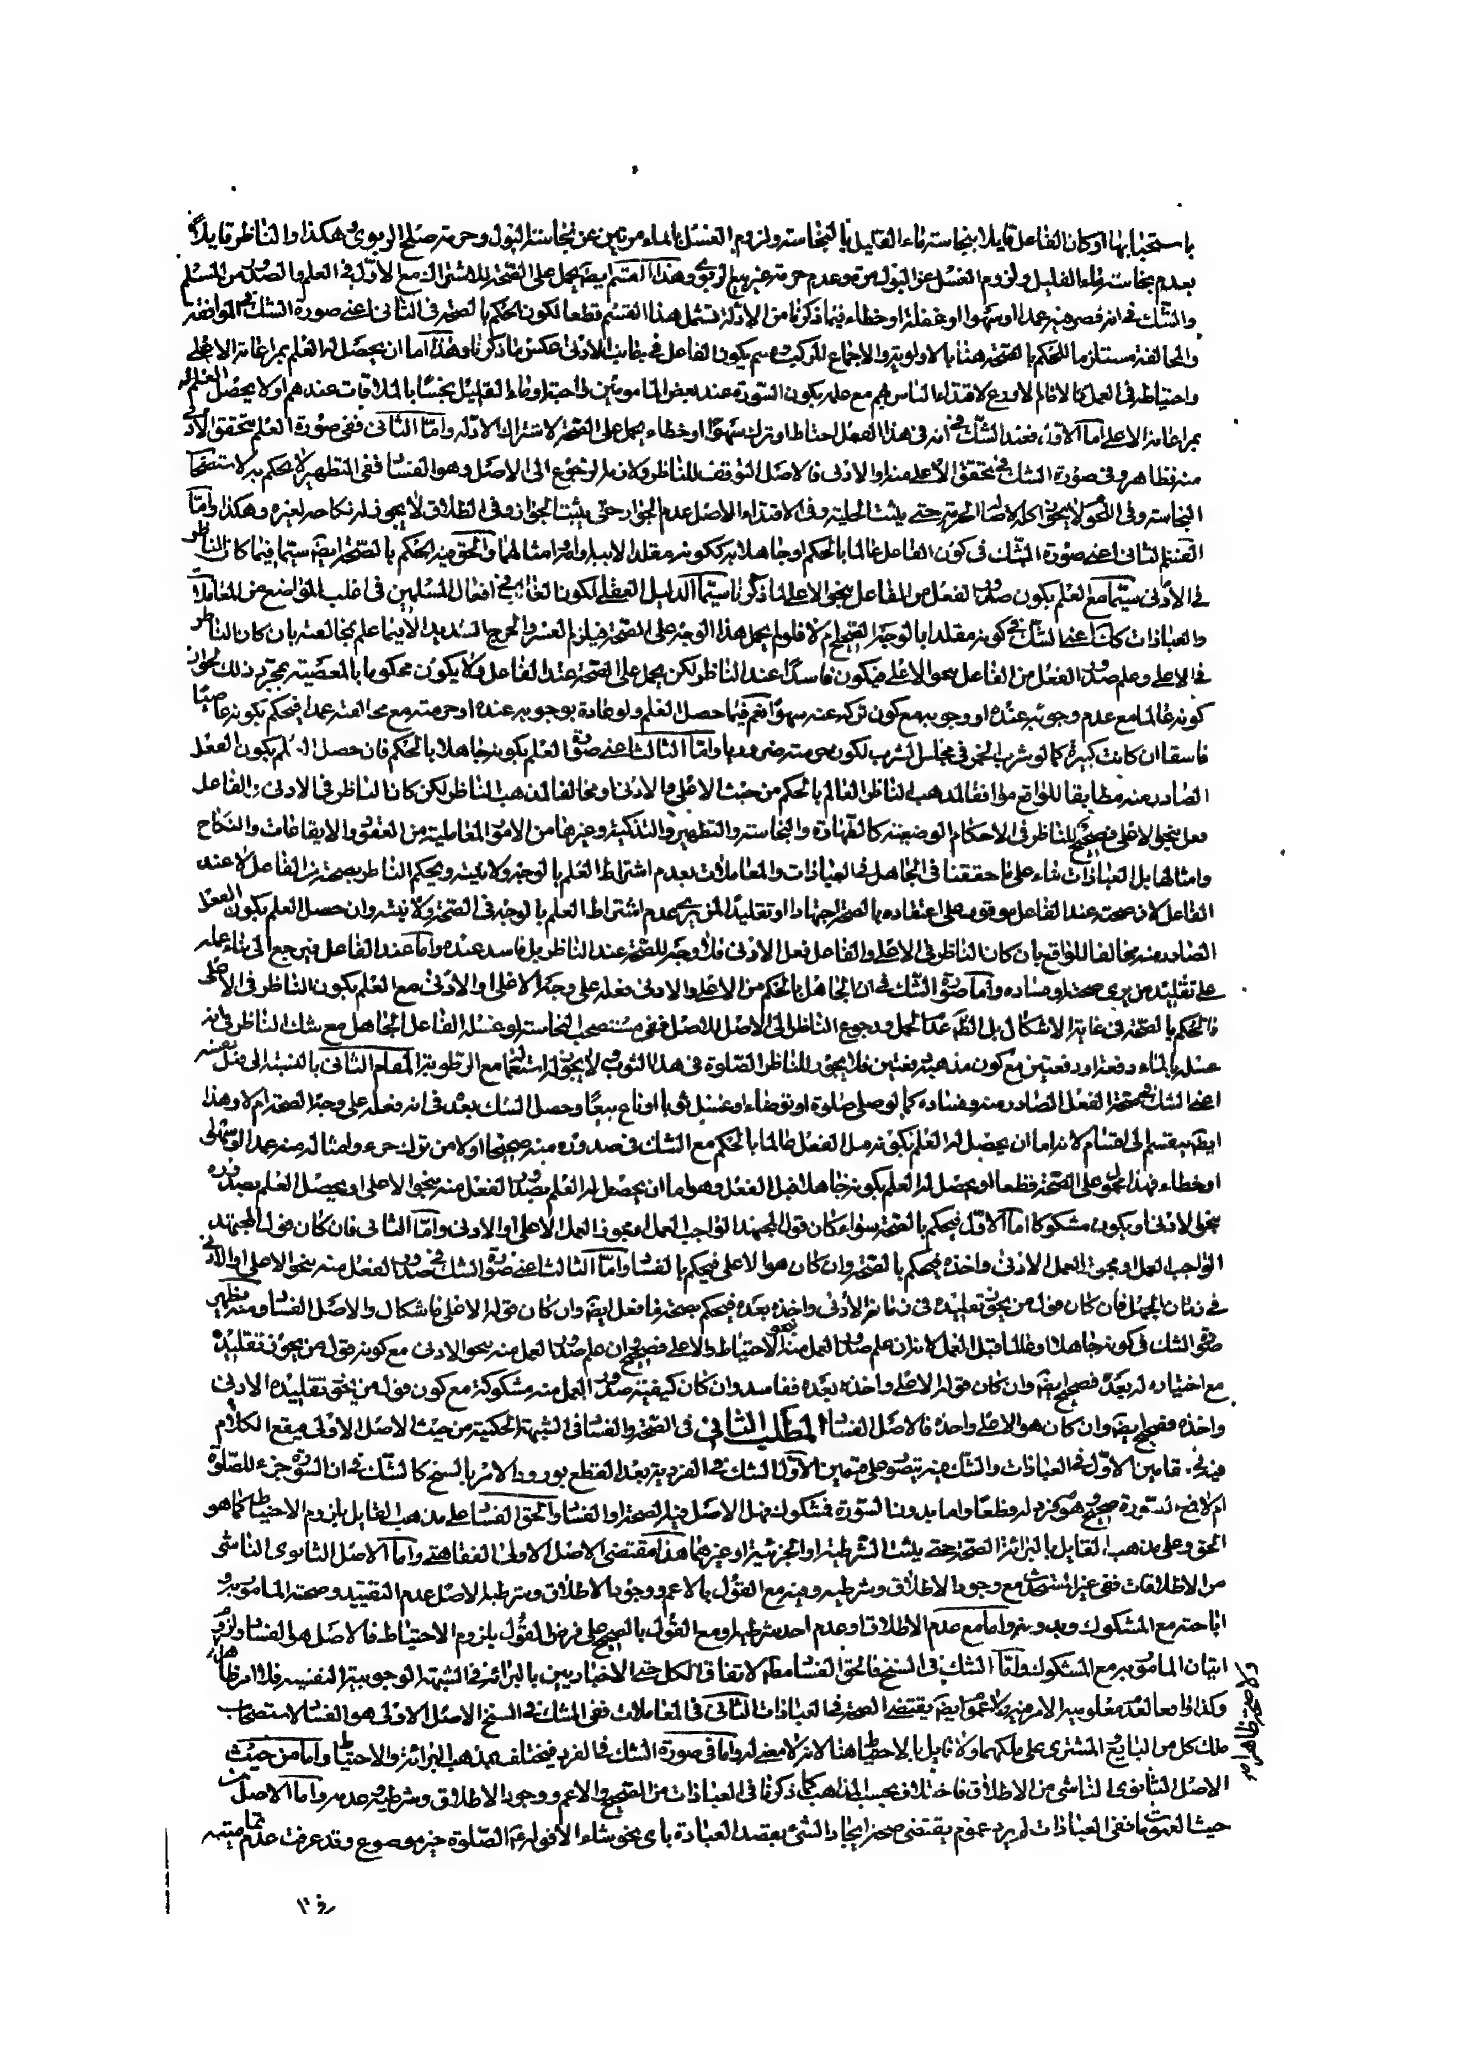 باستحبابها او كان الفاعل قايلا بنجاسته ماء القليل بالنجاسته ولزوم الغسل بالماء مرتين عن نجاسته البول وحرمته صلح الربوى وهكذا والناظر قايلا
بعدم نجاسته ماء القليل ولزوم الغسل عن البول مرة وعدم حرمته غير بيع الربوى وهذا القسم ايضا يحمل على الصحة للاشتراك مع الاول فى العلم والصدور من المسلم
والشك فى انه قصر فيه عمدا او سهوا او غفلة او خطاء فيما ذكرنا من الادلة تشمل هذا القسم قطعا لكون الحكم بالصحة فى الثانى اعنى صورة الشك فى الموافقة
والمخالفة مستلزما للحكم بالصحة هنا بالاولوية والاجماع المركب وقسم يكون الفاعل فى جانب الادنى عكس ما ذكرنا وهذا اما ان يحصل له العلم بمراعاته الاعلى
واحتياطه فى العمل كالامام الاورع لاقتداء الناس بهم مع علمه بكون السورة عند بعض المامومين واجبة او ماء القليل نجسا بالملاقات عندهم او لا يحصل العلم له
بمراعاته الاعلى اما الاول فعند الشك فى انه فى هذا الفعل احتاط او ترك سهوا او خطاء يحمل على الصحة لاشتراك الادلة واما الثانى ففى صورة العلم بتحقق الادنى
منه فظاهر وفى صورة الشك فى تحقق الاعلى منه او الادنى فالاصل التوقف للناظر
النجاسته وفى اللحوم لا يجوز اكله لاصل الحرمة حتى يثبت الحلية وفى الاقتداء الاصل عدم الجواز حتى يثبت الجواز وفى الطلاق لا يجوز له نكاحه لغيره وهكذا واما
القسم الثانى اعنى صورة الشك فى كون الفاعل عالما بالحكم او جاهلا به ككونه مقلدا لابيه او امه وامثالهما والحق فيه الحكم بالصحة ايضا سيما فيما كان الناظر
فى الادنى سيما مع العلم بكون صدور الفعل من الفاعل بنحو الاعلى لما ذكرنا سيما الدليل العقلى لكون الغالب فى افعال المسلمين فى اغلب المواضع من المعاملات
والعبادات كان اعنى الشك فى كونه مقلدا بالوجه الصحيح ام لا فلو لم يحمل هذا الوجه على الصحة فيلزم العسر والحرج الشديد الا فيما علم بمخالفته بان كان الناظر
فى الاعلى وعلم صدور الفعل من الفاعل بنحو الاعلى فيكون فاسدا عند الناظر لكن يحمل على الصحة عند الفاعل ولا يكون محكوما بالمعصية بمجرد ذلك لجواز
كونه عالما مع عدم وجوبه عنده او وجوبه مع كون تركه عنه سهوا نعم فيما حصل العلم ولو عادة بوجوبه عنده او حرمته مع مخالفته عمدا فيحكم بكونه عاصيا
فاسقا ان كانت كبيرة كما لو شرب الخمر فى مجلس الشرب لكون حرمته ضروريا واما الثالث اعنى صورة العلم بكونه جاهلا بالحكم فان حصل العلم بكون الفعل
الصادر عنه مطابقا للواقع موافقا لمذهب الناظر العالم بالحكم من حيث الاعلى والادنى او مخالفا لمذهب الناظر لكن كان الناظر فى الادنى والفاعل
فعل بنحو الاعلى فصحيح للناظر فى الاحكام الوضعيته كالطهارة والنجاسته والتطهير والتذكية وغيرها من الامور المعاملية من العقود والايقاعات والنكاح
وامثالها بل العبادات بناء على ما حققنا فى الجاهل فى العبادات والمعاملات بعدم اشتراط العلم بالوجه ولا نيته ويحكم الناظر بصحته من الفاعل لا عند
الفاعل لان صحته عند الفاعل موقوف على اعتقاده بالصحة اجتهادا او تقليدا لمن يرى عدم اشتراط العلم بالوجه فى الصحة ولا نيته وان حصل العلم بكون الفعل
الصادر منه مخالفا للواقع بان كان الناظر فى الاعلى والفاعل فعل الادنى فلا وجه للصحة عند الناظر بل فاسد عنده واما عند الفاعل فيرجع الى بناء عمله
على تقليد من يرى صحته او فساده واما صورة الشك فى ان الجاهل بالحكم من الاعلى والادنى فعله على وجه الاعلى او الادنى مع العلم بكون الناظر فى الاعلى
فالحكم بالصحة فى غاية الاشكال بل الظاهر عدم الحمل ورجوع الناظر الى الاصل للاصل ففى مستصحب النجاسته لو غسله الفاعل الجاهل مع شك الناظر فى انه
غسله بالماء دفعة او دفعتين مع كون مذهبه دفعتين فلا يجوز للناظر الصلوة فى هذا الثوب ولا يجوز له استعمالها مع الرطوبة المقام الثانى بالنسبة الى فعل نفسه
اعنى الشك فى صحة الفعل الصادر منه وفساده كما لو صلى صلوة او توضاء او غسل ثوبا او باع بيعا وحصل الشك بعد فى انه فعله على وجه الصحة ام لا وهذا
ايضا ينقسم الى اقسام لانه اما ان يحصل له العلم بكونه قبل الفعل عالما بالحكم مع الشك فى صدوره منه صحيحا او لا من ترك جزء وامثاله منه عمدا او سهوا
او خطاء فهذا محمول على الصحة قطعا او يحصل له العلم بكونه جاهلا قبل الفعل وهو اما ان يحصل له العلم بصدور الفعل منه بنحو الاعلى او يحصل العلم بصدوره
بنحو الادنى او يكون مشكوكا اما الاول فيحكم بالصحة سواء كان قول المجتهد الواجب العمل او يجوز العمل الاعلى او الادنى واما الثانى فان كان قول المجتهد
الواجب العمل او يجوز العمل الادنى واخذه فيحكم بالصحة وان كان هو الاعلى فيحكم بالفساد واما الثالث اعنى صورة الشك فى صدور الفعل منه بنحو الاعلى او الادنى
فى زمان الجهل فان كان قول من يجوز تقليده فى زمانه الادنى واخذه بعده فيحكم بصحة ما فعل ايضا وان كان قوله الاعلى فاشكال والاصل الفساد ومنه يظهر
صورة الشك فى كونه جاهلا او عالما قبل العمل لانه ان علم صدور العمل منه بنحو الاحتياط والاعلى فصحيح وان علم صدور العمل منه بنحو الادنى مع كونه قول من يجوز تقليده
مع اختياره له بعد فصحيح ايضا وان كان قوله الاعلى واخذه بعده ففاسد وان كان كيفية صدور العمل منه مشكوكة مع كون قول من يجوز تقليده الادنى
واخذه فصحيح ايضا وان كان هو الاعلى واخذه فالاصل الفساد المطلب الثانى فى الصحة والفساد فى الشبهة الحكمية من حيث الاصل الاولى فيقع الكلام
فيه فى مقامين الاول فى العبادات والشك فيه يتصور على قسمين الاول الشك فى الفردية بعد القطع بورود الامر بالسنخ كالشك فى ان السورة جزء للصلوة
ام لا فمع السورة صحيح هو كفرد له قطعا واما بدون السورة فمشكوك فهل الاصل فيه الصحة او الفساد والحق الفساد على مذهب القايل بلزوم الاحتياط كما هو
الحق وعلى مذهب القايل بالبرائة الصحة حتى يثبت الشرطية او الجزئية او غيرهما هذا مقتضى الاصل الاولى الفقاهتى واما الاصل الثانوى الناشى
من الاطلاقات ففى غير المستحدث مع وجود الاطلاق وشرطيه وفيه مع القول بالاعم ووجود الاطلاق وشرطيه الاصل عدم التقييد وصحة المامور به
اتيانه مع المشكوك وبدونه واما مع عدم الاطلاق او عدم احد شرطيه او مع القول بالصحيح على فرض القول بلزوم الاحتياط فالاصل هو الفساد ولزوم
اتيان المامور به مع المشكوك واما الشك فى السنخ فالحق الفساد مطلقا لاتفاق الكل حتى الاخباريين بالبرائة فى الشبهة الوجوبية النفسية فلا امر ظاهرا
وكذا واقعا لعدم معلومية الامر فيه ولا عموم ايضا يقتضى الصحة فى العبادات الثانى فى المعاملات ففى الشك فى السنخ الاصل الاولى هو الفساد لاستصحاب
ملك كل من البايع والمشترى على ملكهما ولا قايل بالاحتياط هنا لانه لا معنى له واما فى صورة الشك فى الفرد فيختلف بمذهب البرائة والاحتياط واما من حيث
الاصل الثانوى الناشى من الاطلاق فاختلاف بحسب المذاهب كما ذكرنا فى العبادات من الصحيح والاعم ووجود الاطلاق وشرطيه وعدمه واما الاصل من
حيث العمومات ففى العبادات لم يرد عموم يقتضى صحة ايجاد الشئ بقصد العبادة باى نحو شاء الا قوله الصلوة خير موضوع وقد عرفت عدم تماميته